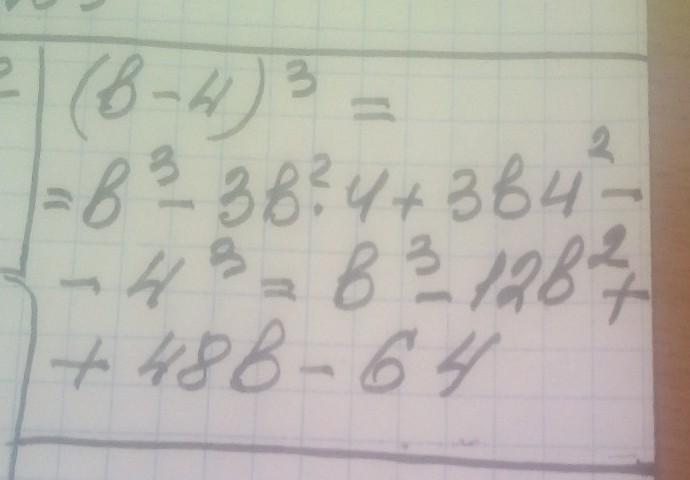 (в-4)³ =
= в³ - 3в²·4 + 3в4² -
- 4³ = в³ - 12в² +
+ 48в - 64